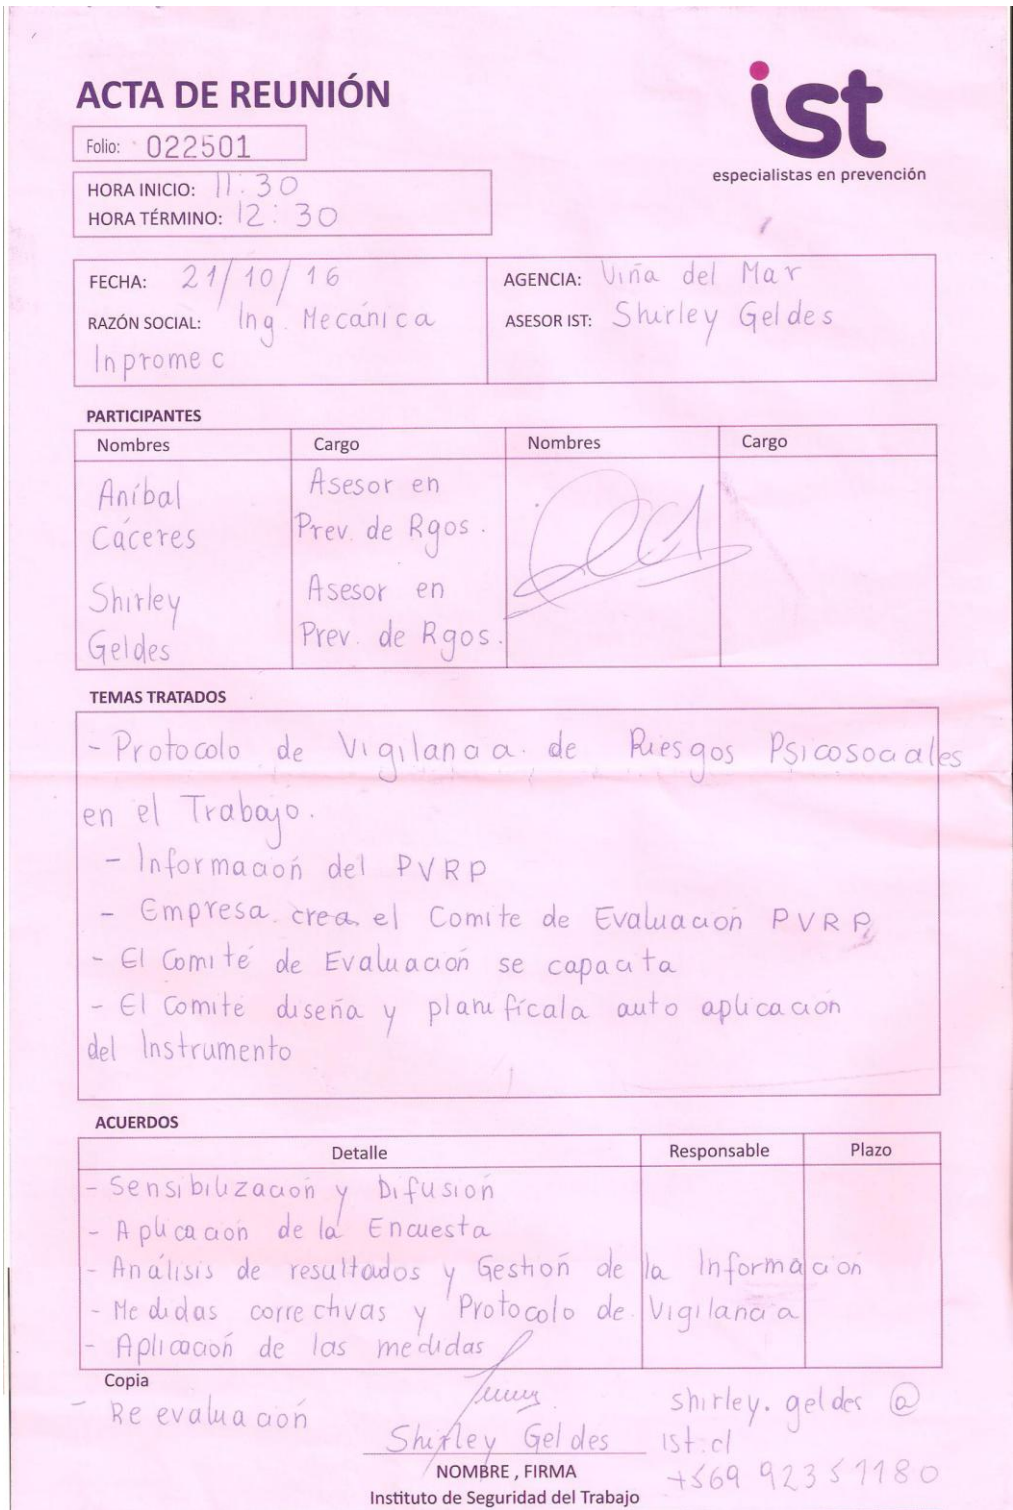 ACTA DE REUNIÓN
ist
especialistas en prevención
Folio: 022501
HORA INICIO: 11:30
HORA TÉRMINO: 12:30
FECHA: 21/10/16
RAZÓN SOCIAL: Ing. Mecánica
Inpromec
AGENCIA: Viña del Mar
ASESOR IST: Shirley Geldes
PARTICIPANTES
Nombres Cargo Nombres Cargo
Aníbal Asesor en
Cáceres Prev. de Rgos.
Shirley Asesor en
Geldes Prev. de Rgos.
TEMAS TRATADOS
- Protocolo de Vigilancia de Riesgos Psicosociales
en el Trabajo.
- Información del PVRP
- Empresa crea el Comite de Evaluación PVRP
- El Comité de Evaluación se capacita
- El Comité diseña y planifícala auto aplicación
del Instrumento
ACUERDOS
Detalle Responsable Plazo
- Sensibilización y Difusión
- Aplicación de la Encuesta
- Análisis de resultados y Gestión de la Información
- Medidas correctivas y Protocolo de Vigilancia
- Aplicación de las medidas
Copia
- Re evaluación
Shirley Geldes
NOMBRE , FIRMA
Instituto de Seguridad del Trabajo
shirley.geldes@
ist.cl
+569 92351180